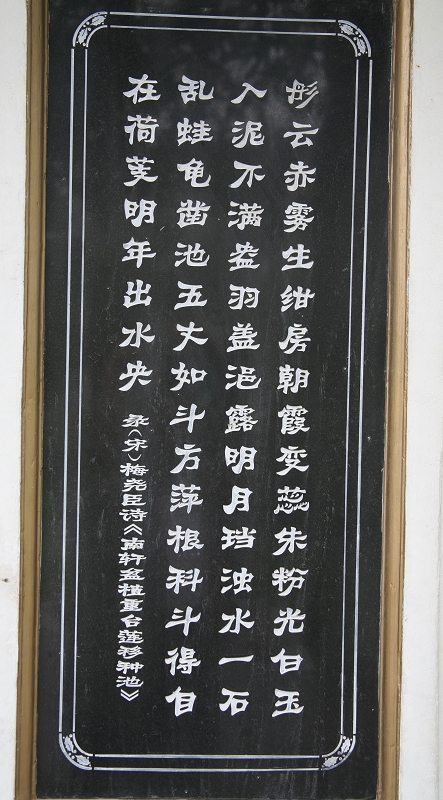 彤云赤雾生绀房朝霞变蕊朱粉光白玉
入泥不满盎羽盖浥露明月珰浊水一石
乱蛙龟凿池五丈如斗方萍根科斗得自
在荷芰明年出水央
录(宋)梅尧臣诗《南轩盆植重台莲移种池》